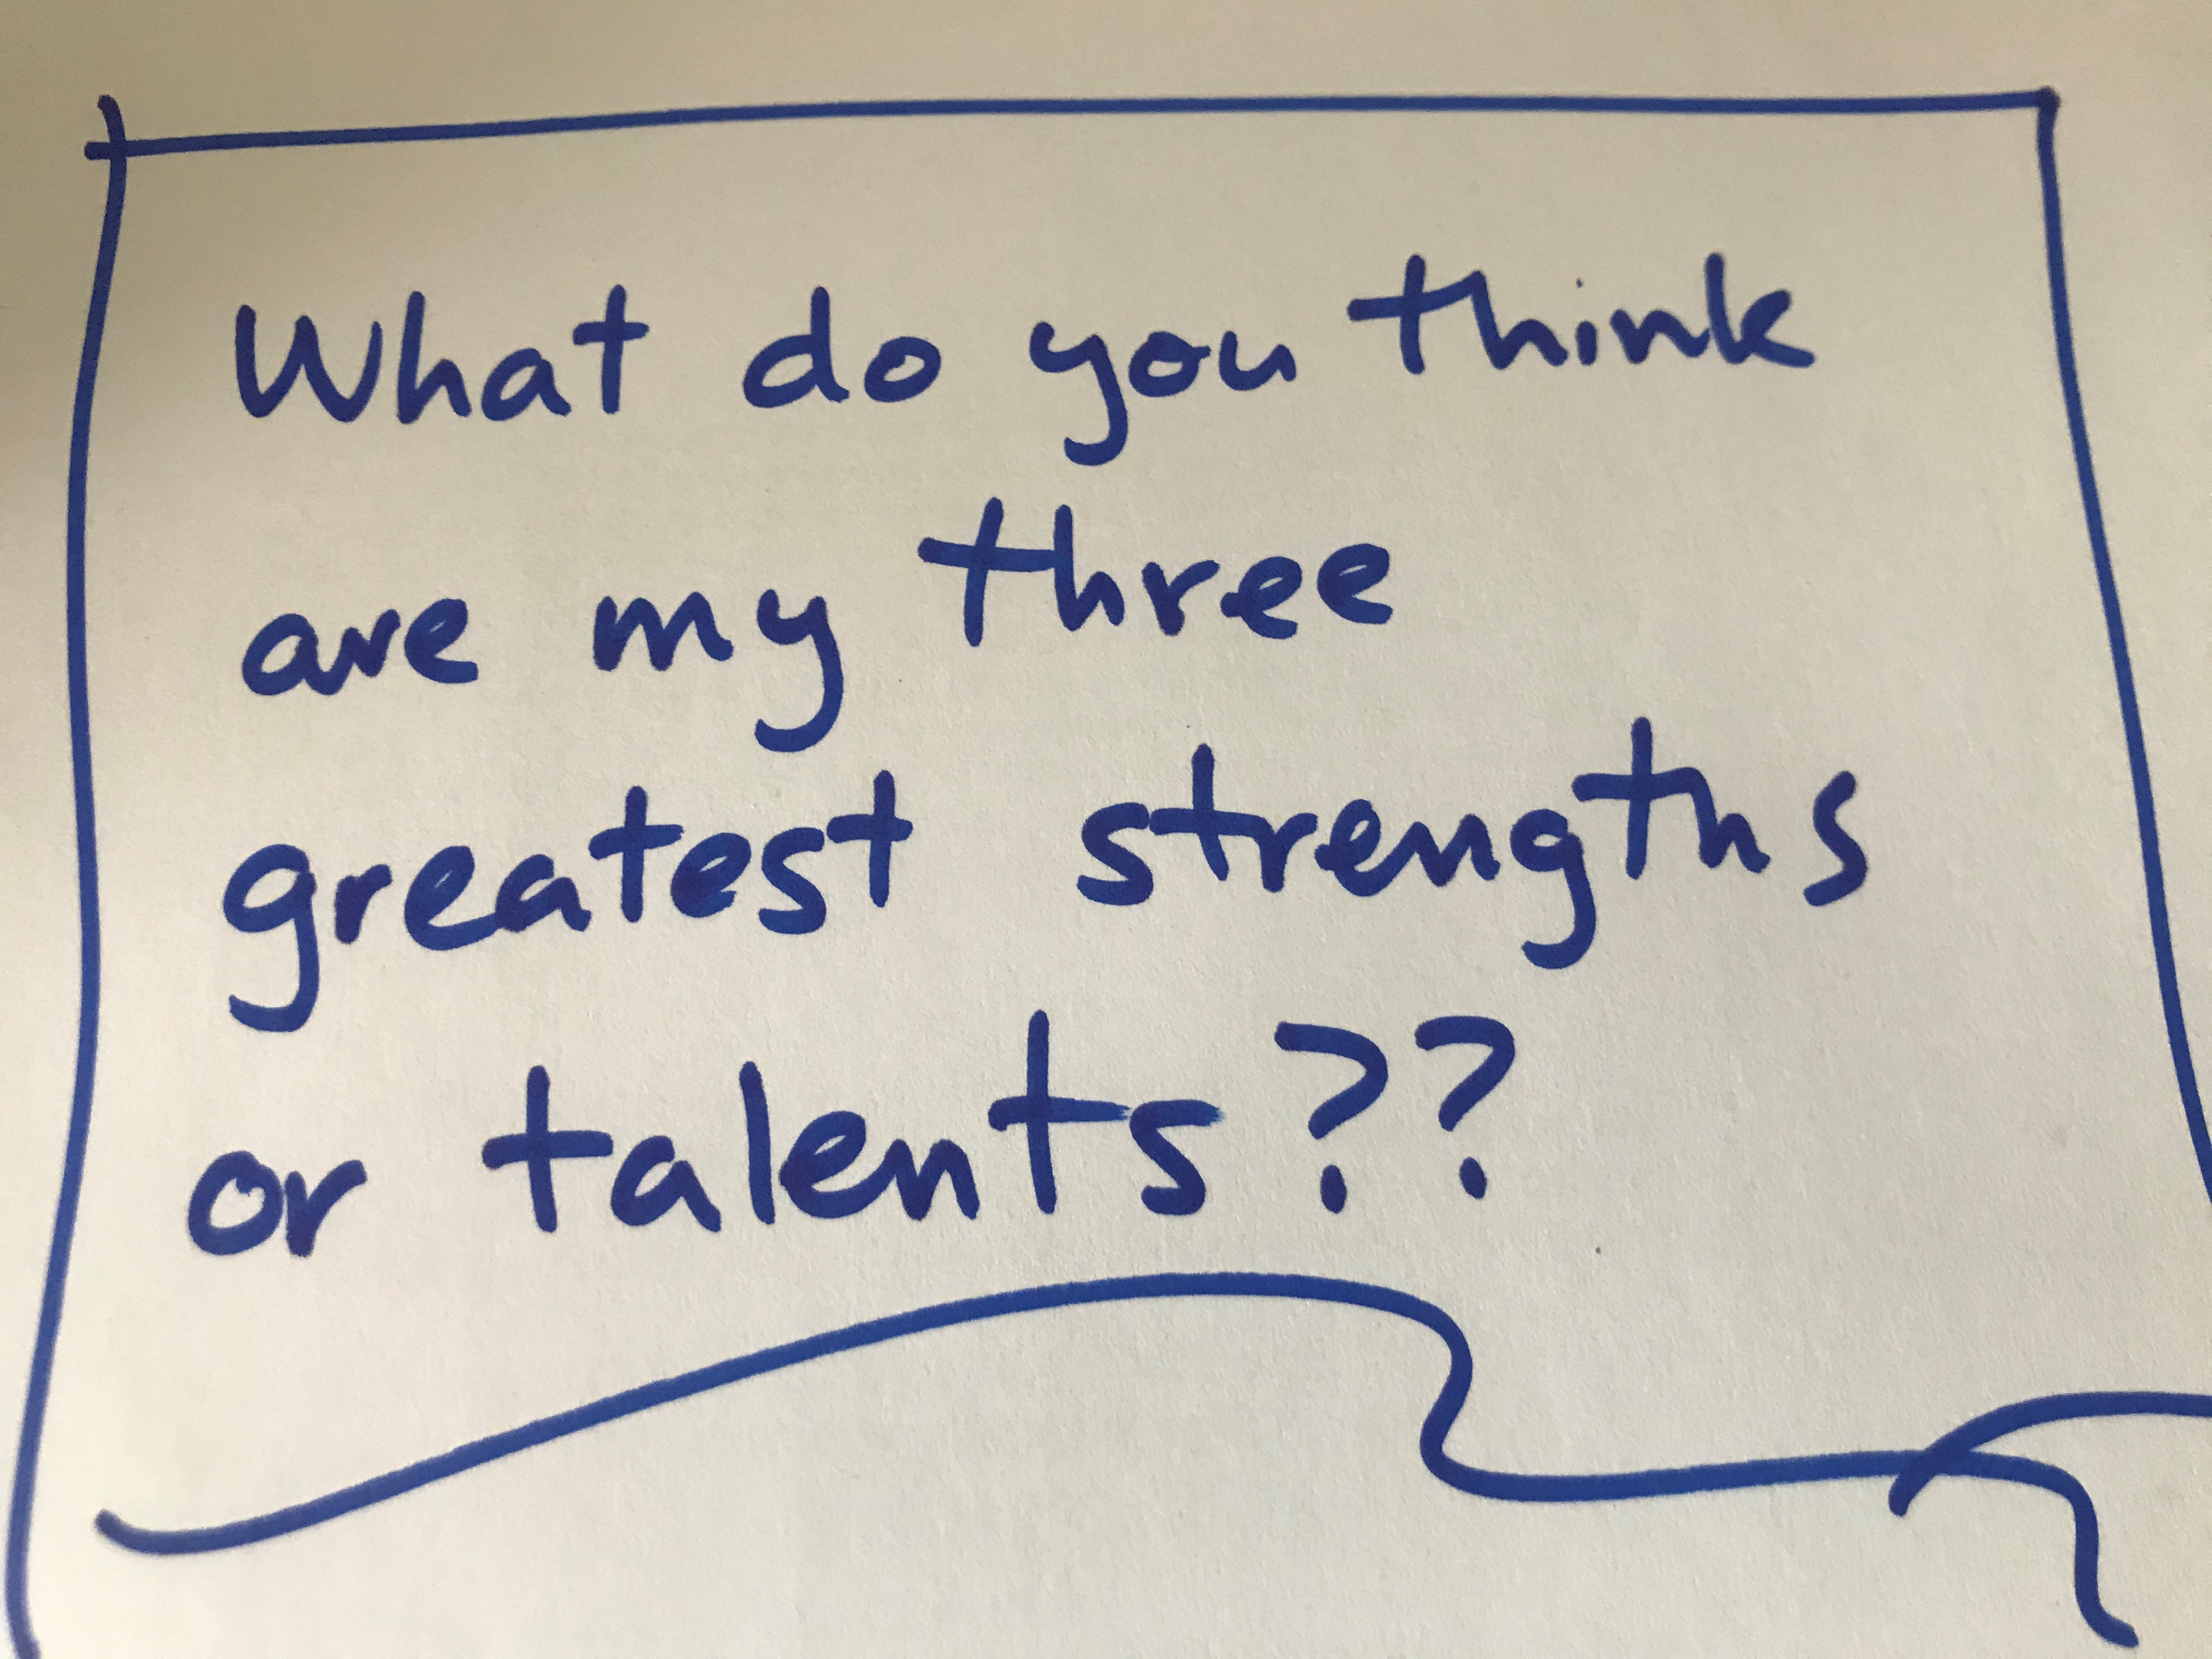 What do you think
are my three
greatest strengths
or talents??